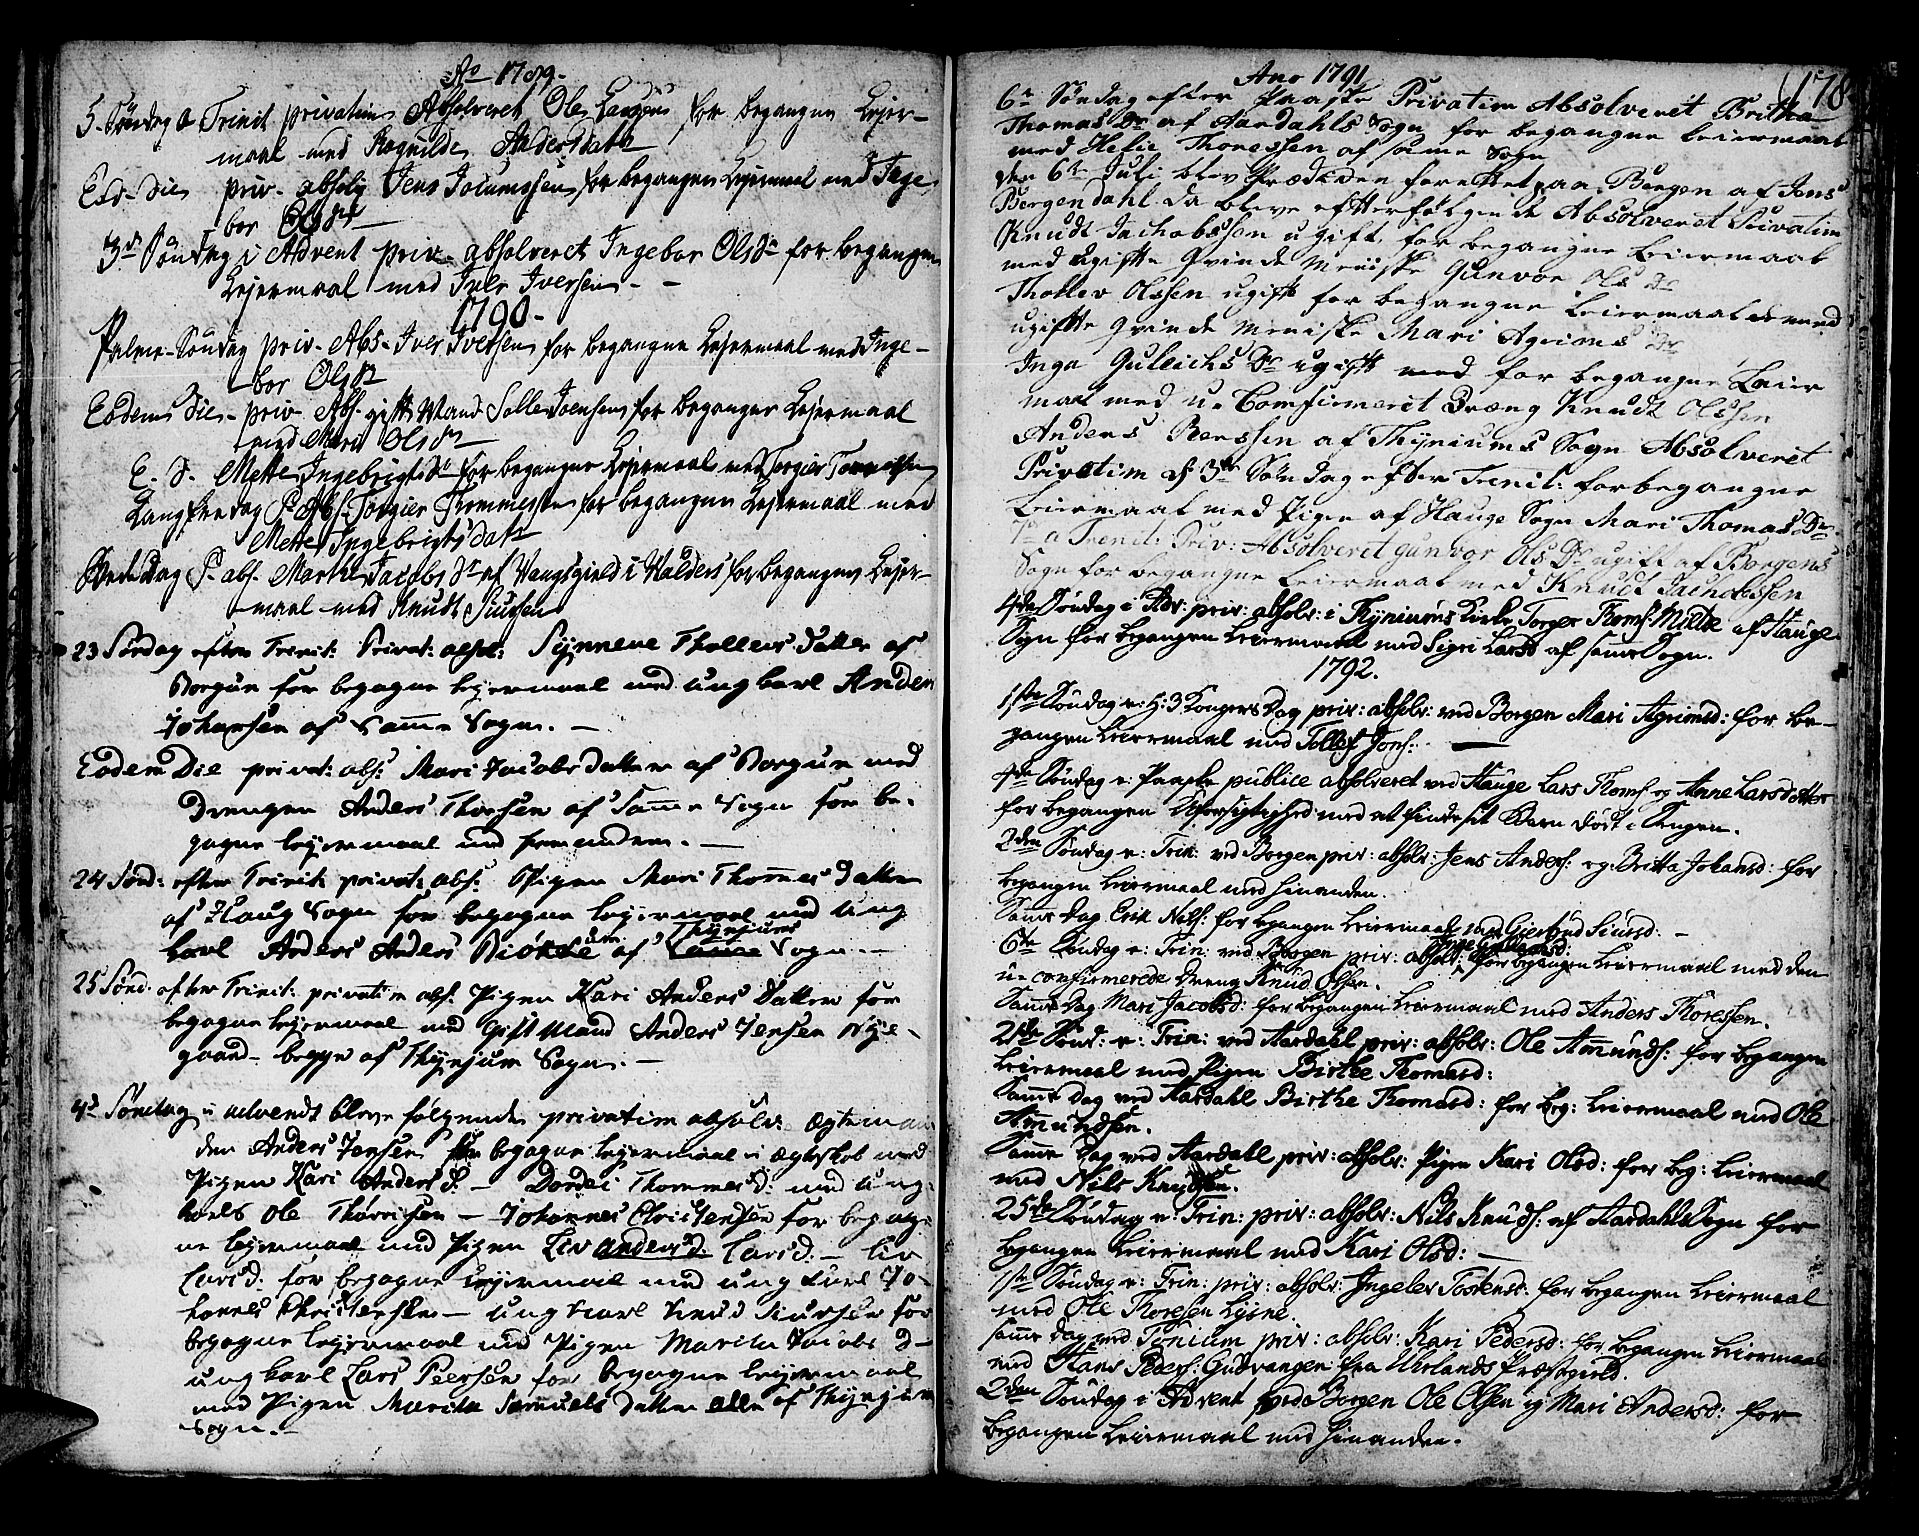 Ao 1789.
5. Søndag a Trinit privatim Absolveret Ole for begangne Lejer-
maal med Ragnilde Andersdatr
Eod. Die priv. absolv Jens for begangen Lejermaal med Inge
bor Olsdr
3de Søndag i Advent priv. absolveret Ingebor Olsdr for begangen
Lejermaal med Iver Iversen
1790.
Palme-Søndag priv. Abs. Iver Iversen for begangne Lejermaal med Inge-
bor Olsdr
Eodem Die priv. Abs. gift Mand Joensen for begangen Lejermaal
med Mari Olsdr
E. D. Mette Ingebrigtsdr for begangne Lejermaal med Torgier
Langfredag P. Abs. Torgier for begangen Lejermaal med
Mette Ingebrigtsdatr
P. abs. Marthe Jacobsdr af Vangsgield i Walders for begangen Lejer-
maal med Knudt Siursen
23 Søndag efter Trenit: Privat: absol: Synneve Thollevs Datter af
Borgun for begagne lejermaal med ungkarl Anders
Johansen af Samme Sogn. —
Eodem Die privat: abs: Mari Jacobs Datter af Borgun med
Drengen Anders Thorsen af Samme Sogn for be-
gagne lejermaal med hverandren. —
24 Sønd: efter Trinit: privat: abs: Pigen Mari Thommes Datter
af Haug Sogn for begagne lejermaal med Ung
karl Anders Anders af Thynjums Sogn —
25 Sønd. efter Trinit: privatim abs: Pigen Kari Anders Datter for
begagne lejermaal med Gift Mand Anders Jensen Nÿe-
gaard begge af Thynjum Sogn. —
4d Søndag i advendt bleve følgende privatim absolv: Ægteman
den Anders Jensen for begagne lejermaal i Ægteskab med
Pigen Kari Anders D. — Dordei Thommes D: med ung-
karls Ole Thorrisen — Johannes Christensen for begag-
ne lejermaal med Pigen Liv Andersd. Larsd. — Liv
Larsd: for begagne lejermaal med ung karl Jo-
hannes Christensen — ung karl Knud Siursen for
begagne lejermaal med Pigen Marita Jacobs D —
ungkarl Lars Peersen for begagne lejermaal
med Pigen Marita Samuels Datter alle af Thynjum
Sogn. —
178
Ano 1791
6te Søndag efter Paaske Privatim Absolveret Britha
Thomas Dr af Aardahls Sogn for begangne Leiermaal
med Thoressen af samme Sogn
den 6te Juli blev Prædiken forrettet paa Borgen af Jens
Bergendahl. Da bleve efterfølgende Absolveret Privatim
Knudt Jachobssen ugift for begangne Leiermaal
med ugifte Qvinde Meniske Gunvor Ols Dr
Thollev Olssen ugift for begangne Leiermaal med
ugifte Qvinde Meniske Mari Agrims Dr
Inga Gulleichs Dr ugift med for begangne Leier
maal med u-Comfirmeret Dræng Knudt Olssen
Anders Berssen af Thÿniums Sogn Absolveret
Privatim d 3de Søndag efter Trenit: for begangne
Leiermaal med Pigen af Hauge Sogn Mari Thomas Dr
7de a Trenit: Priv: Absolveret Gunvor Ols Dr ugift af Borgens
Sogn for begangne Leiermaal med Knudt Jachobssen
4de Søndag i Adv: priv: absolv: i Thÿniums Kirke Torger Thoms: af Hauge
Sogn for begangen Leiermaal med Sigri Larsd af samme Sogn.
1792.
1ste Søndag e: H: 3 Kongers Dag priv: absolv: ved Borgen Mari Agrimsd: for be-
gangen Leiermaal med Tollef Jons: —
4de Søndag e: Paaske publice absolveret ved Hauge Lars Thoms: og Anne Larsdotter
for begangen Uforsigtighed med at finde sit Barn død i Sengen.
2den Søndag e: Trin: ved Borgen priv: absolv: Jens Anders: og Britta Johansd: for
begangen Leiermaal med hinanden.
Samme Dag Erik Nils: for begangen Leiermaal med Giertrud Siursd: —
6te Søndag e: Trin: ved Borgen priv: absolv: for begangen Leiermaal med den
u-confirmerede Dreng Knud Olsen.
Samme Dag Mari Jacobsd: for begangen Leiermaal med Anders Thoressen.
21de Sønd: e: Trin: ved Aardahl priv: absolv: Ole Amunds: for begangen
Leiermaal med Pigen Birthe Thomasd:
Samme Dag ved Aardahl Birthe Thomasd: for beg: Leiermaal med Ole
Amundsen.
Samme Dag ved Aardahl priv: absolv: Pigen Kari Olsd: for beg: Leiermaal
med Nils Knudsen.
25de Søndag e: Trin: priv: absolv: Nils Knuds: af Aardahls Sogn for
begangen Leiermaal med Kari Olsd: —
1ste Søndag e: Trin: priv: absolv: Ingeler for begangen Leiermaal
med Ole Thoresen
samme Dag ved Tönium priv: absolv: Kari Pedersd: for begangen Leiermaal
med Hans Peders: Gudvangen fra Uhrlands Præstegield.
2den Søndag i Advent ved Borgen Ole Olsen og Mari Andersd: for
begangen Leiermaal med hinanden.